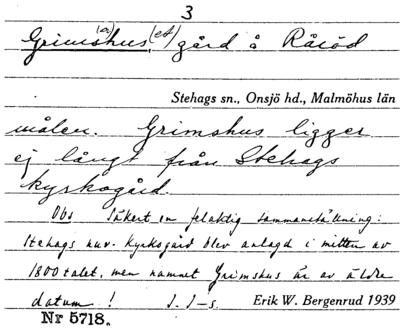 3
Grimshus (a) (et) gård å Råröd
Stehags sn., Onsjö hd., Malmöhus län
målen. Grimshus ligger
ej långt från Stehags
kyrkogård.
Obs Säkert en felaktig sammanställning:
Stehags nuv. kyrkogård blev anlagd i mitten av
1800 talet, men namnet Grimshus är av äldre
datum! J. I-s. Erik W. Bergenrud 1939
Nr 5718.